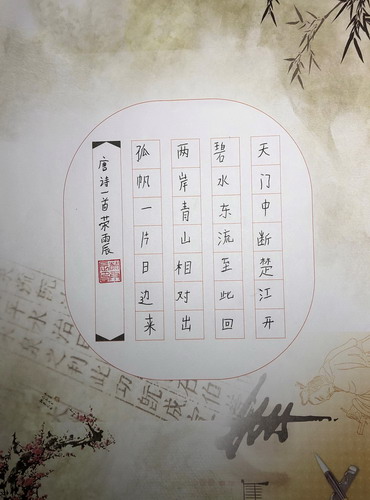 天门中断楚江开
碧水东流至此回
两岸青山相对出
孤帆一片日边来
唐诗一首